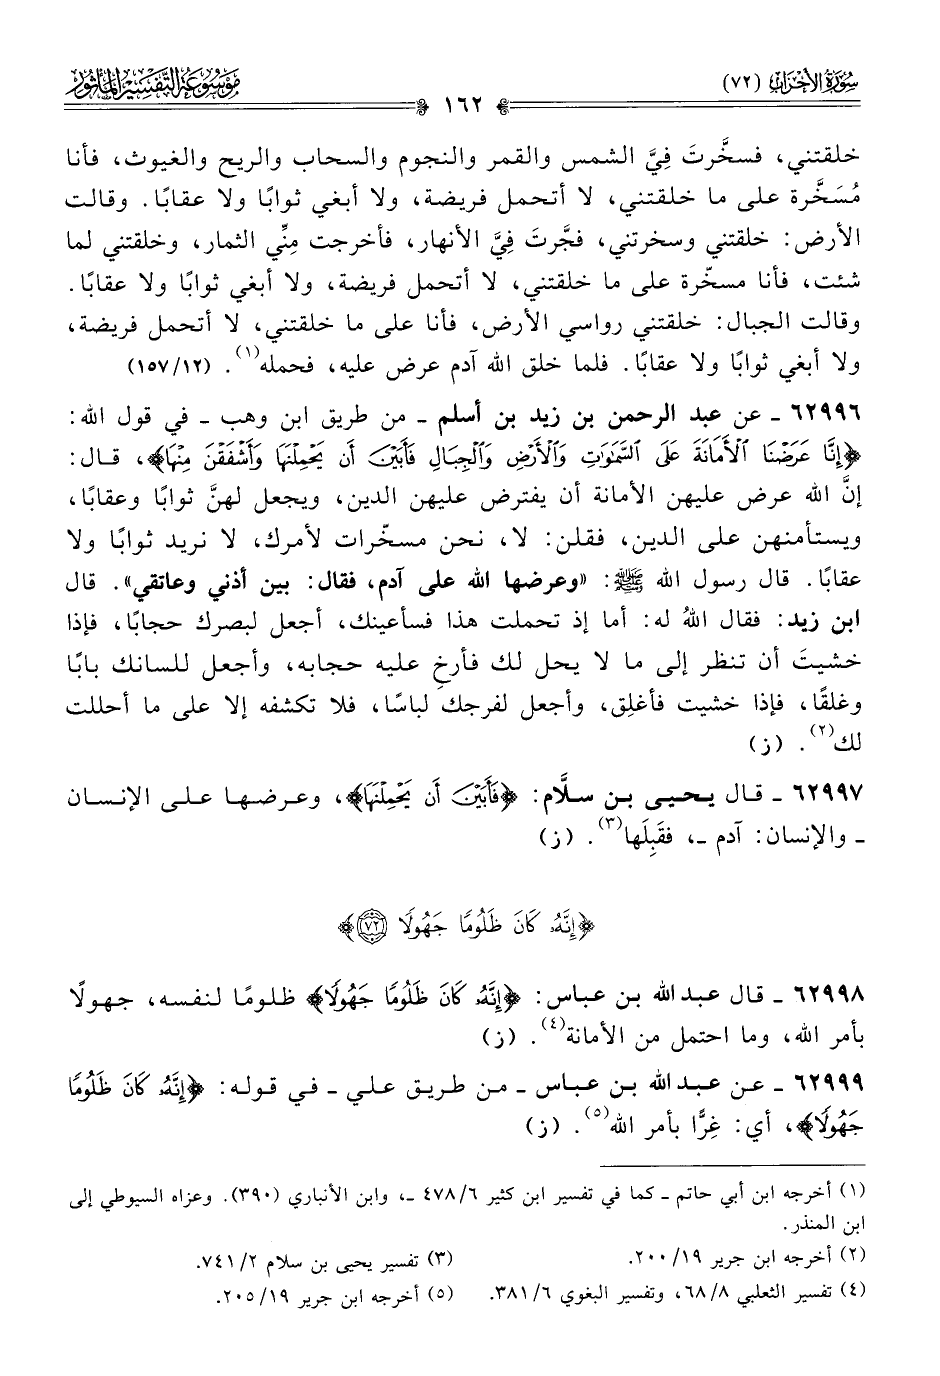 سُورَةُ الأَحْزَاب (٧٢)
مَوْسُوعَةُ التَّفْسِيرِ المَأْثُور
١٦٢
خلقتني، فسخَّرتَ فِيَّ الشمس والقمر والنجوم والسحاب والريح والغيوث، فأنا
مُسَخَّرة على ما خلقتني، لا أتحمل فريضة، ولا أبغي ثوابًا ولا عقابًا. وقالت
الأرض: خلقتني وسخرتني، فجَّرتَ فِيَّ الأنهار، فأخرجت مِنِّي الثمار، وخلقتني لما
شئت، فأنا مسخّرة على ما خلقتني، لا أتحمل فريضة، ولا أبغي ثوابًا ولا عقابًا.
وقالت الجبال: خلقتني رواسي الأرض، فأنا على ما خلقتني، لا أتحمل فريضة،
ولا أبغي ثوابًا ولا عقابًا. فلما خلق الله آدم عرض عليه، فحمله(١). (١٥٧/١٢)
٦٢٩٩٦ ـ عن عبد الرحمن بن زيد بن أسلم ـ من طريق ابن وهب ـ في قول الله:
﴿إِنَّا عَرَضْنَا ٱلْأَمَانَةَ عَلَى ٱلسَّمَٰوَٰتِ وَٱلْأَرْضِ وَٱلْجِبَالِ فَأَبَيْنَ أَن يَحْمِلْنَهَا وَأَشْفَقْنَ مِنْهَا﴾، قال:
إنَّ الله عرض عليهن الأمانة أن يفترض عليهن الدين، ويجعل لهنَّ ثوابًا وعقابًا،
ويستأمنهن على الدين، فقلن: لا، نحن مسخّرات لأمرك، لا نريد ثوابًا ولا
عقابًا. قال رسول الله ﷺ: «وعرضها الله على آدم، فقال: بين أذني وعاتقي». قال
ابن زيد: فقال اللهُ له: أما إذ تحملت هذا فسأعينك، أجعل لبصرك حجابًا، فإذا
خشيتَ أن تنظر إلى ما لا يحل لك فأرخِ عليه حجابه، وأجعل للسانك بابًا
وغلقًا، فإذا خشيت فأغلِق، وأجعل لفرجك لباسًا، فلا تكشفه إلا على ما أحللت
لك(٢). (ز)
٦٢٩٩٧ ـ قال يحيى بن سلَّام: ﴿فَأَبَيْنَ أَن يَحْمِلْنَهَا﴾، وعرضها على الإنسان
ـ والإنسان: آدم ـ، فقَبِلَها(٣). (ز)
﴿إِنَّهُۥ كَانَ ظَلُومًا جَهُولًا ٧٢﴾
٦٢٩٩٨ ـ قال عبد الله بن عباس: ﴿إِنَّهُۥ كَانَ ظَلُومًا جَهُولًا﴾ ظلومًا لنفسه، جهولًا
بأمر الله، وما احتمل من الأمانة(٤). (ز)
٦٢٩٩٩ ـ عن عبد الله بن عباس ـ من طريق علي ـ في قوله: ﴿إِنَّهُۥ كَانَ ظَلُومًا
جَهُولًا﴾، أي: غِرًّا بأمر الله(٥). (ز)
(١) أخرجه ابن أبي حاتم ـ كما في تفسير ابن كثير ٤٧٨/٦ ـ، وابن الأنباري (٣٩٠). وعزاه السيوطي إلى
ابن المنذر.
(٢) أخرجه ابن جرير ٢٠٠/١٩.
(٣) تفسير يحيى بن سلام ٧٤١/٢.
(٤) تفسير الثعلبي ٦٨/٨، وتفسير البغوي ٣٨١/٦.
(٥) أخرجه ابن جرير ٢٠٥/١٩.